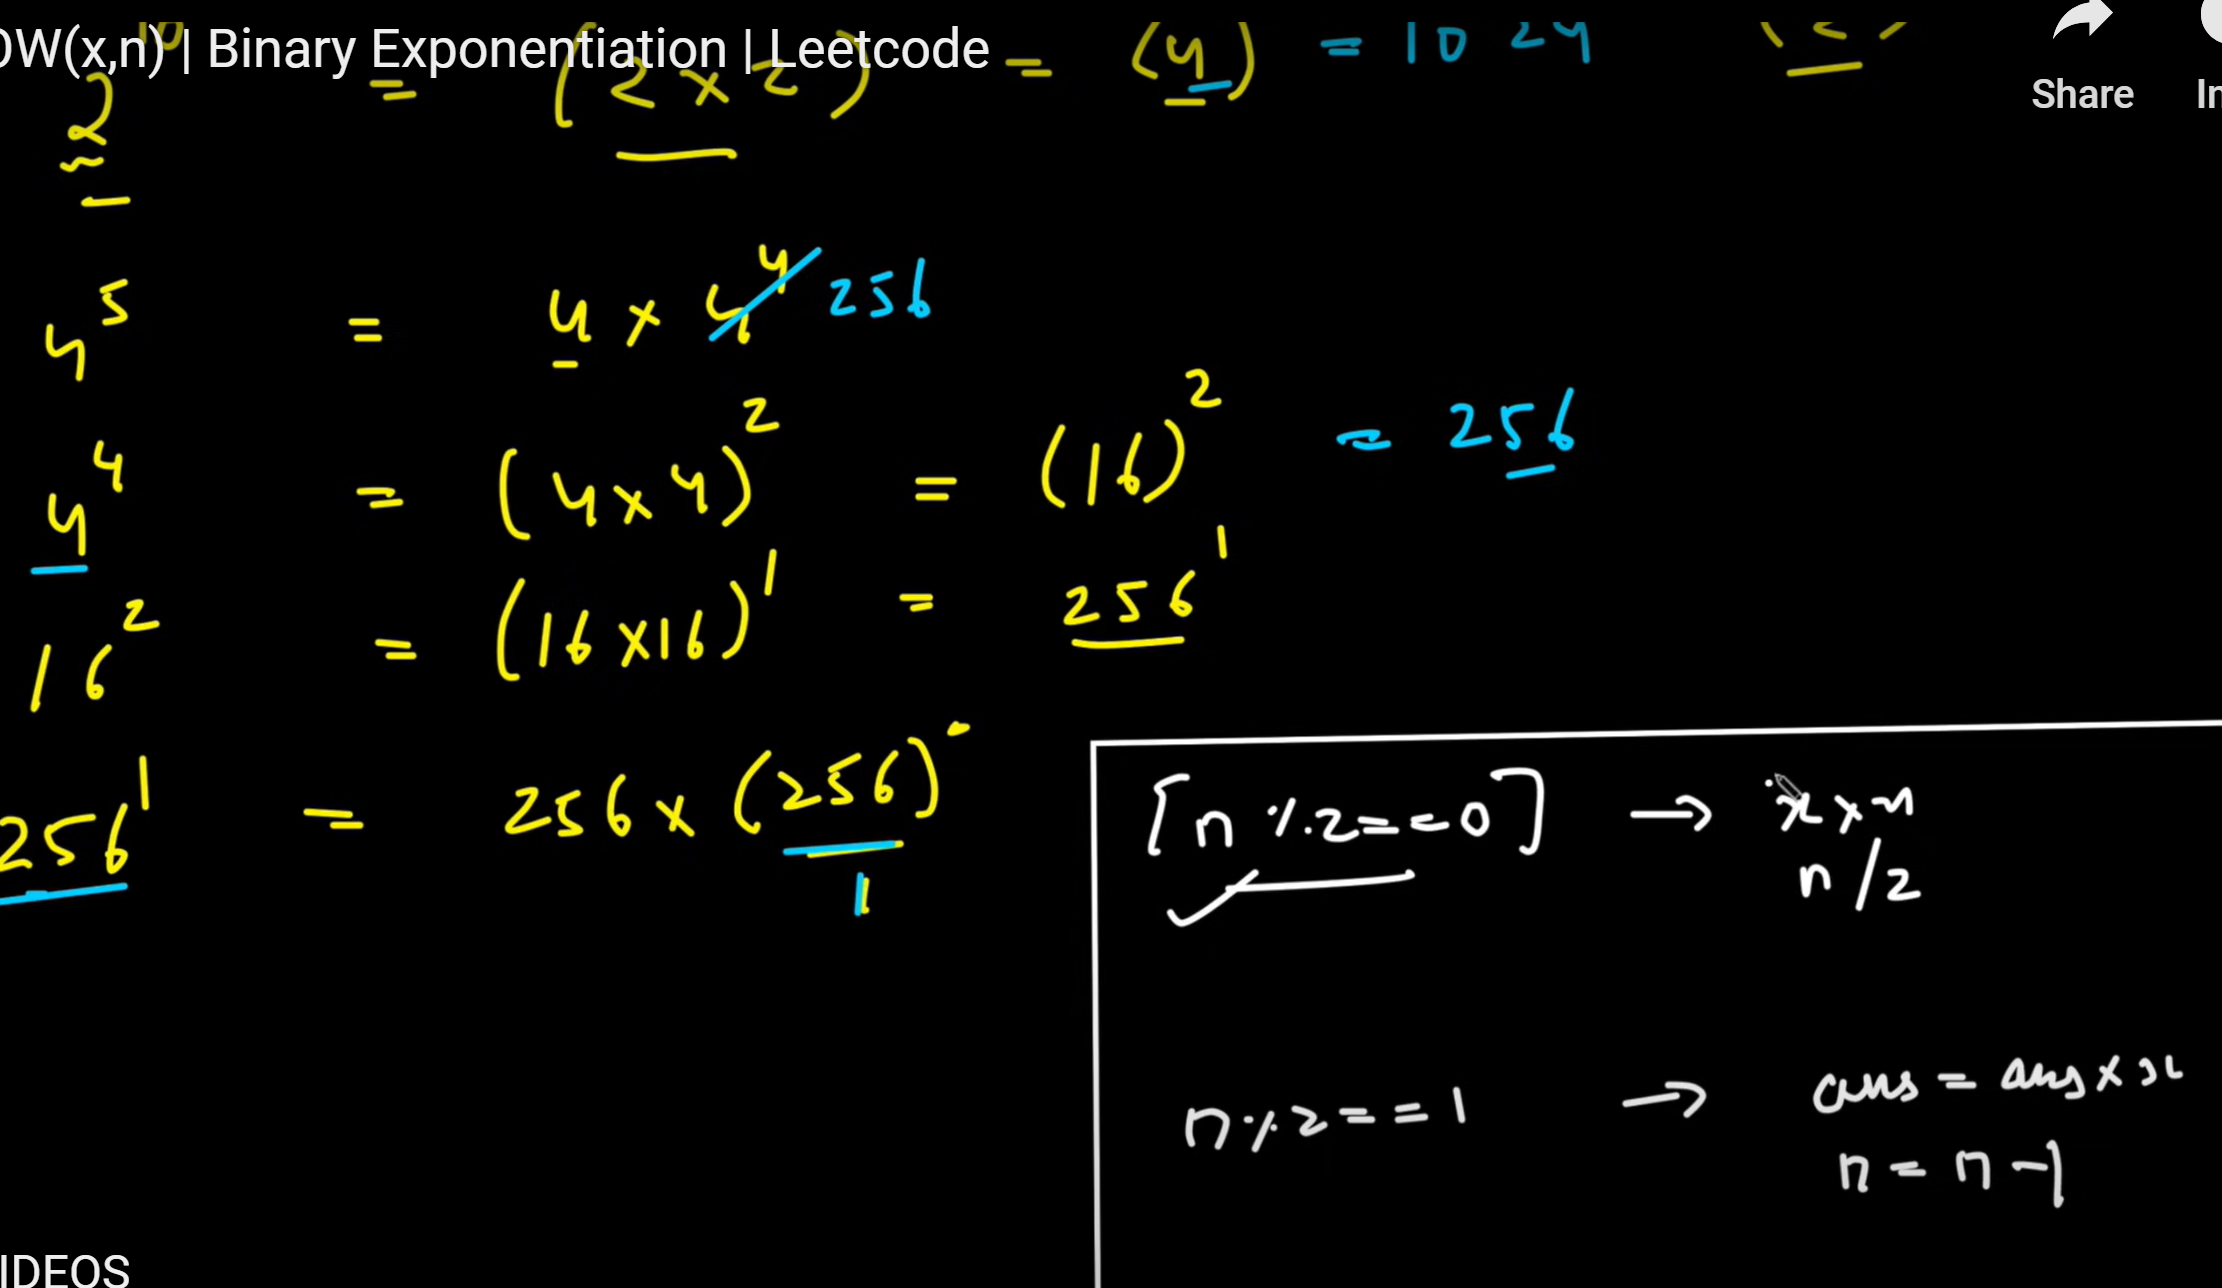 OW(x,n) | Binary Exponentiation | Leetcode
Share
2^10 = (2×2) = (4) = 1024
4^5 = 4 × 4^4 256
4^4 = (4×4)^2 = (16)^2 = 256
16^2 = (16×16)^1 = 256^1
256^1 = 256 × (256)
1
[n % 2 == 0] → x × x
n/2
n % 2 == 1 → ans = ans × x
n = n - 1
IDEOS